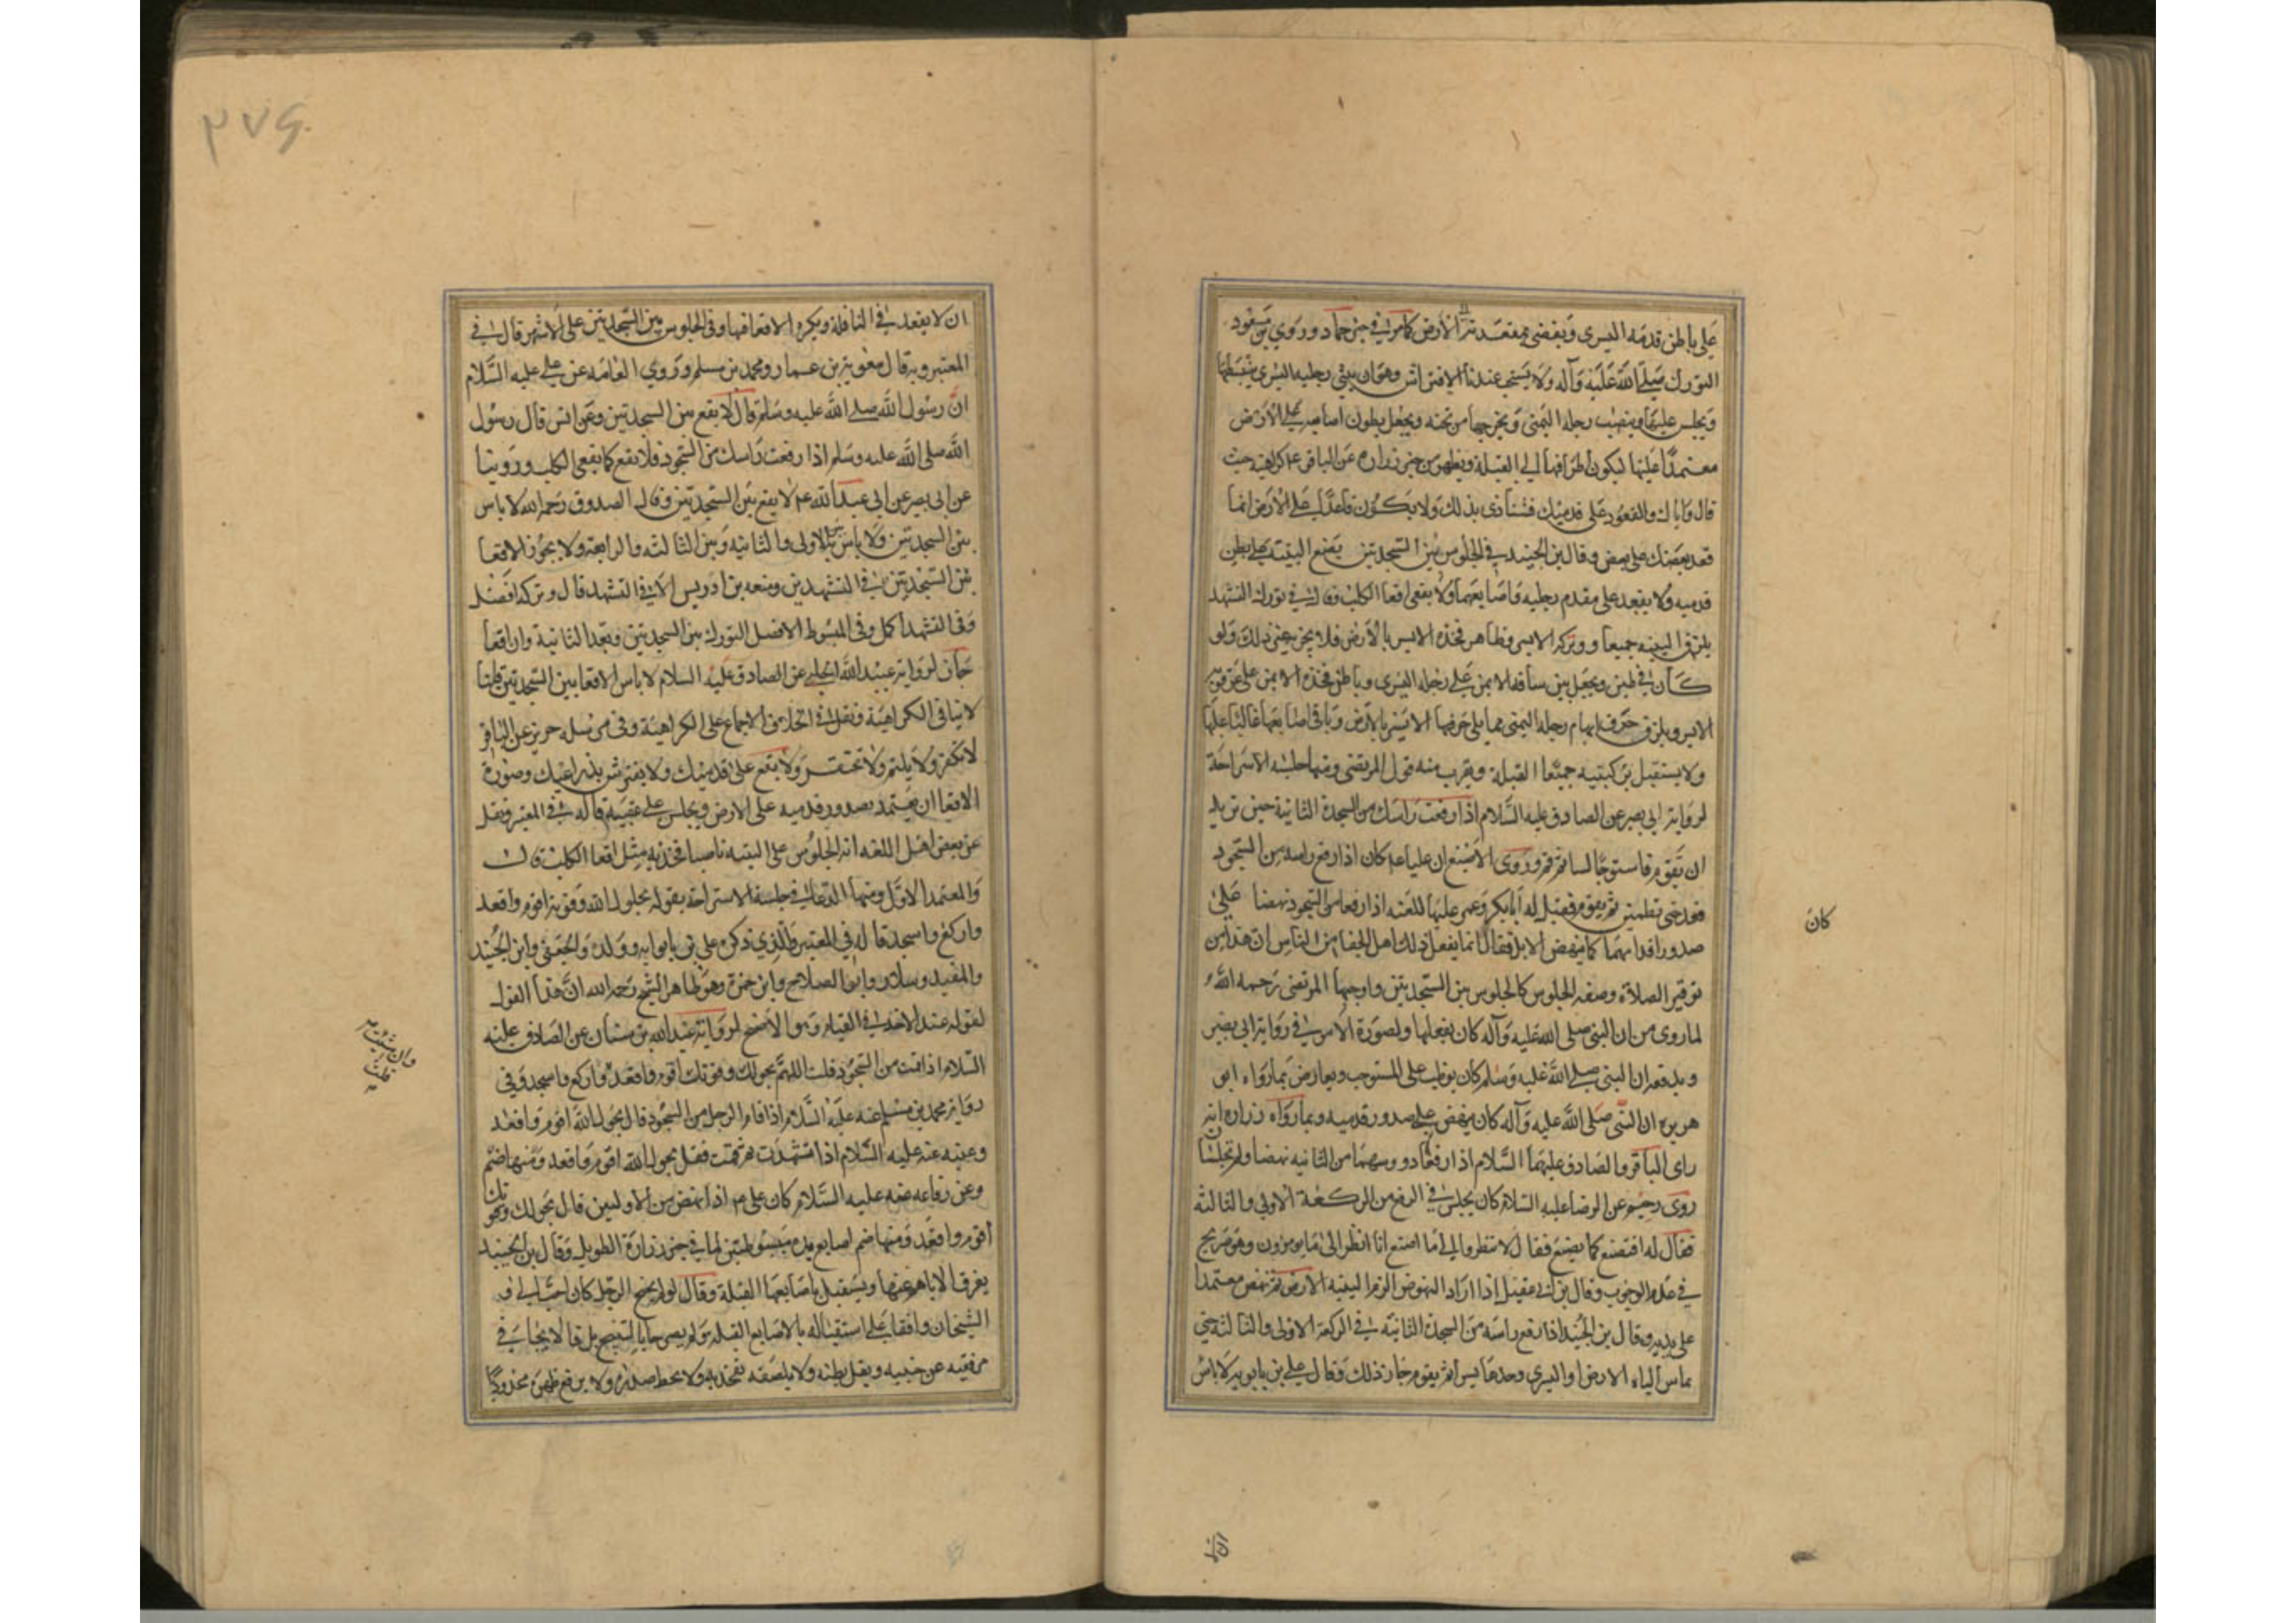 علی باطن قدمه الیسری ویفضی بمقعدته الی الارض کما مر فی خبر حماد وروی بن مسعود
التورك صلی الله علیه وآله ولا یستحب عندنا الافتراش وهو ان یثنی رجلیه الیسری یبسطها
ویجلس علیها وینصب رجله الیمنی ویخرجها من تحته ویجعل بطون اصابعه علی الارض
معتمدا علیها لیکون اطرافها الی القبلة ویظهر من خبر زراره عن الباقر ع م کراهیته حیث
قال وایاك والقعود علی قدمیك فتتاذی بذلك ولا یکون قاعدا علی الارض انما
قعد بعضك علی بعض وقال بن الجنید فی الجلوس بین السجدتین یضع الیتیه علی بطن
قدمیه ولا یقعد علی مقدم رجلیه واصابعهما ولا یقعی اقعا الکلب وقال فی تورك التشهد
یلزق الیتیه جمیعا وورکه الایسر وظاهر فخذه الایسر بالارض فلا یجزیه غیر ذلك ولو
کان فی طین ویجعل بین ساقه الایمن علی رجله الیسری وباطن فخذه الایمن علی عرقوبه
الایسر ویلزق حرف ابهام رجله الیمنی مما یلی حرفها الایسر بالارض وباقی اصابعها عالیا علیها
ولا یستقبل برکبتیه جمیعا القبلة ویقرب منه قول المرتضی ومنها جلسة الاستراحة
لروایة ابی بصیر عن الصادق علیه السلام اذا رفعت راسك من السجدة الثانیة حین ترید
ان تقوم فاستو جالسا ثم قم وروی الاصبغ ان علیا ع م کان اذا رفع راسه من السجود
قعد حتی تطمین ثم یقوم فقیل له ابا بکر وعمر علیها اللعنه اذا رفعا من السجود نهضا علی
کان
صدور اقدامهما کما ینهض الابل فقال انما یفعل ذلك اهل الجفا من الناس ان هذا من
توقیر الصلاة وصفه الجلوس کالجلوس بین السجدتین واوجبها المرتضی رحمه الله
لما روی من ان النبی صلی الله علیه وآله کان یفعلها ولصورة الامر فی روایة ابی بصیر
ویدفعه ان النبی صلی الله علیه وسلم کان یوظب علی المستوجب ویعارض بما رواه ابو
هریره ان النبی صلی الله علیه وآله کان ینهض علی صدور قدمیه وبما رواه زراره انه
رای الباقر والصادق علیهما السلام اذا رفعا روسهما من الثانیه نهضا ولم یجلسا
روی رحیم عن الرضا علیه السلام کان یجلس فی الرفع من الرکعة الاولی والثالثه
فقال له افتصنع کما یصنع فقال لا تنظروا الی ما اصنع انا انظر الی ما یومرون وهو صریح
فی عدم الوجوب وقال بن ابی عقیل اذا اراد النهوض الزم الیتیه الارض ثم نهض معتمدا
علی یدیه وقال بن الجنید اذا رفع راسه من السجدة الثانیة فی الرکعة الاولی والثالثة حتی
یماس الیاه الارض او الیسری وحدها یسیرا ثم یقوم جاز ذلك وقال علی بن بابویه لا باس
ان لا
۲۷۶
ان لا یقعد فی النافلة ویکره الاقعا فیها وفی الجلوس بین السجدتین علی الاشهر قال فی
المعتبر وبه قال معویة بن عمار ومحمد بن مسلم وروی العامه عن علی علیه السلام
ان رسول الله صلی الله علیه وسلم قال لا یقع بین السجدتین وعن انس قال رسول
الله صلی الله علیه وسلم اذا رفعت راسك من السجود فلا تقع کما یقعی الکلب وروینا
عن ابی بصیر عن ابی عبدالله ع م لا یقع بین السجدتین وقال الصدوق رحمه الله لا باس
بین السجدتین ولا باس بین الاولی والثانیه وبین الثالثه والرابعة ولا یجوز الاقعا
بین السجدتین فی التشهدین ومنعه بن ادریس الا فی التشهد قال وترکه افضل
وفی التشهد اکمل وفی المبسوط الافضل التورك بین السجدتین وبعد الثانیة وان اقعا
جاز لروایة عبیدالله الحلبی عن الصادق علیه السلام لا باس الاقعا بین السجدتین قلنا
لا ینافی الکراهیة ونقل فی الخلاف الاجماع علی الکراهیة وفی مرسله حریز عن الباقر
لا تکفر ولا یلثم ولا تحتفز ولا تقع علی قدمیك ولا یفترش بذراعیك وصورة
الاقعا ان یعتمد بصدور قدمیه علی الارض ویجلس علی عقبیه قاله فی المعتبر ونقل
عن بعض اهل اللغه انه الجلوس علی الیتیه ناصبا فخذیه مثل اقعا الکلب قال
والمعتمد الاول ومنها الدعا فی جلسة الاستراحة بقوله بحول الله وقوته اقوم واقعد
وارکع واسجد قاله فی المعتبر والذی ذکره علی بن بابویه وولده والجعفی وابن الجنید
والمفید وسلار وابو الصلاح وابن حمزة وهو ظاهر الشیخ رحمه الله ان هذا القول
لقوله عند الاخذ فی القیام وهو الاصح لروایة عبدالله بن سنان عن الصادق علیه
السلام اذا قمت من السجود قلت اللهم بحولك وقوتك اقوم واقعد وارکع واسجد وفی
وان شئت
روایة محمد بن مسلم عنه علیه السلام اذا قام الرجل من السجود قال بحول الله اقوم واقعد
وعنه عنه علیه السلام اذا تشهدت ثم قمت فقل بحول الله اقوم واقعد ومنها ضم
وعن رفاعه عنه علیه السلام کان علی م اذا نهض من الاولیین قال بحولك وقوتك
اقوم واقعد ومنها ضم اصابع یده مبسوطتین لما فی خبر زرارة الطویل وقال بن الجنید
یفرق الابهام عنها ویستقبل باصابعهما القبلة وقال لو لم یجنح الرجل کان احب الی و
الشیخان وافقا علی استقباله بالاصابع القبله
مرفقیه عن جنبیه ویقل بطنه ولا یلصقه بفخذیه ولا یحط صدره ولا یرفع ظهره محدودبا